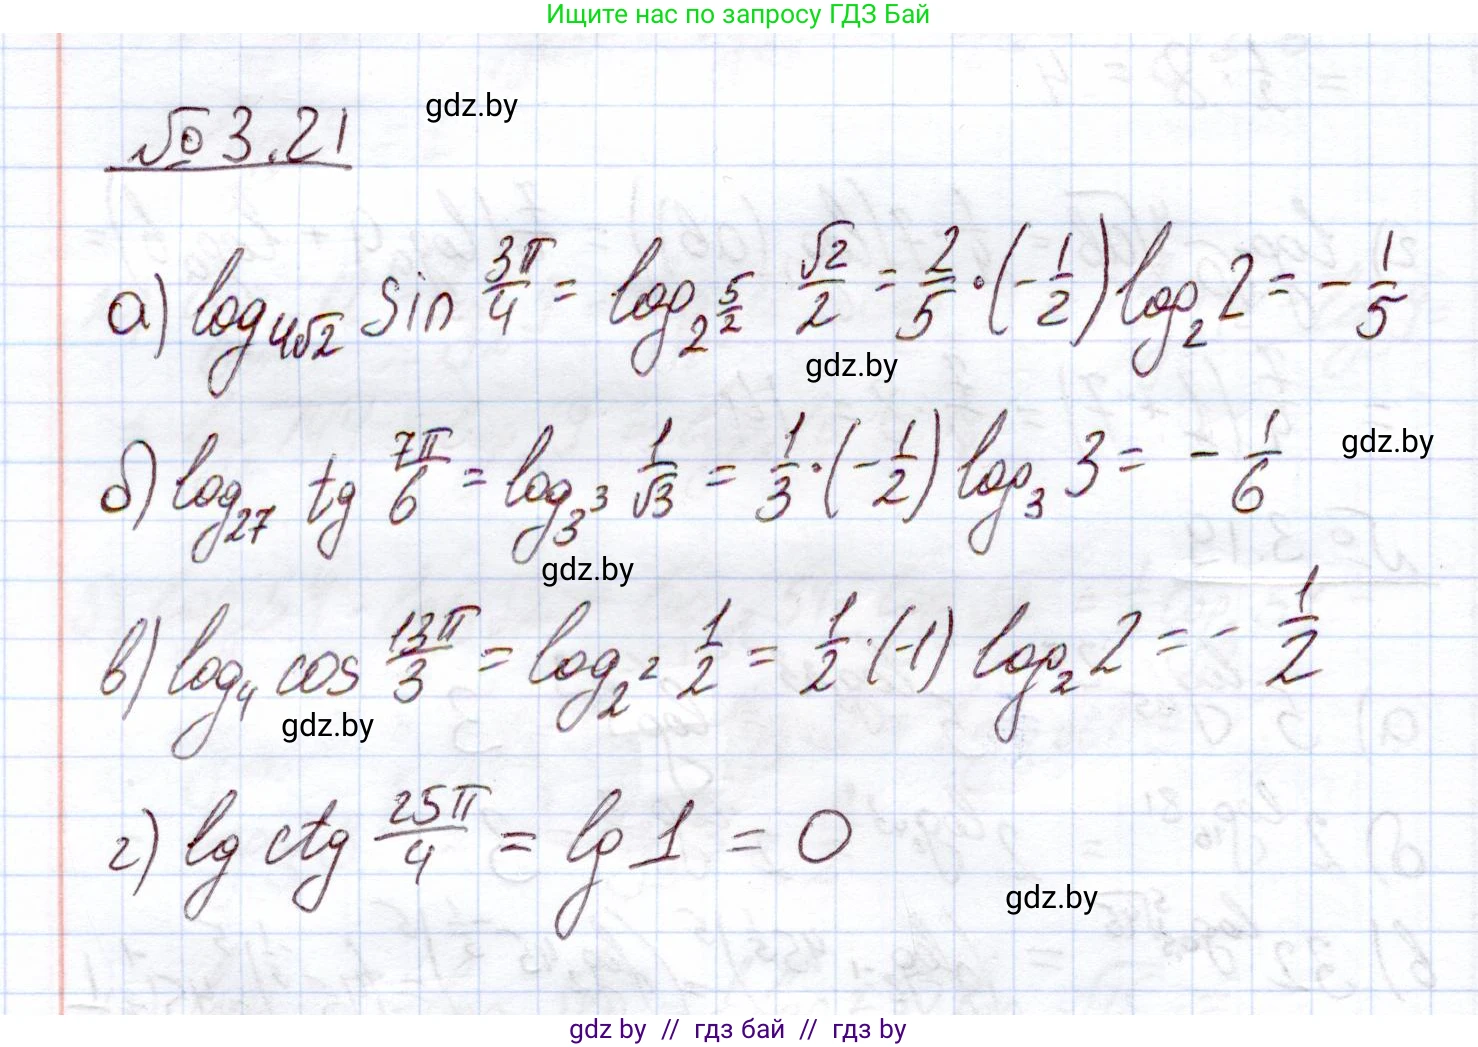 Ищите нас по запросу ГДЗ Бай
№ 3.21
gdz.by
а) log_{4√2} sin 3π/4 = log_{2^{5/2}} √2/2 = 2/5 · (-1/2) log_2 2 = - 1/5
gdz.by
gdz.by
б) log_{27} tg 7π/6 = log_{3^3} 1/√3 = 1/3 · (-1/2) log_3 3 = - 1/6
gdz.by
в) log_4 cos 13π/3 = log_{2^2} 1/2 = 1/2 · (-1) log_2 2 = - 1/2
gdz.by
г) lg ctg 25π/4 = lg 1 = 0
gdz.by
gdz by // гдз бай // гдз by